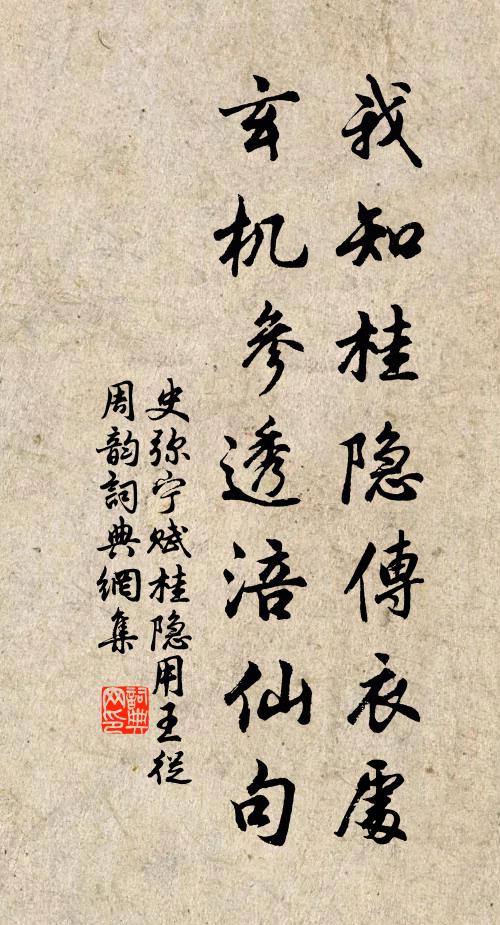 我知桂隐傳衣處
玄机參透涪仙句
史弥宁赋桂隐用王從
周韵詞典網集
詞典
网印